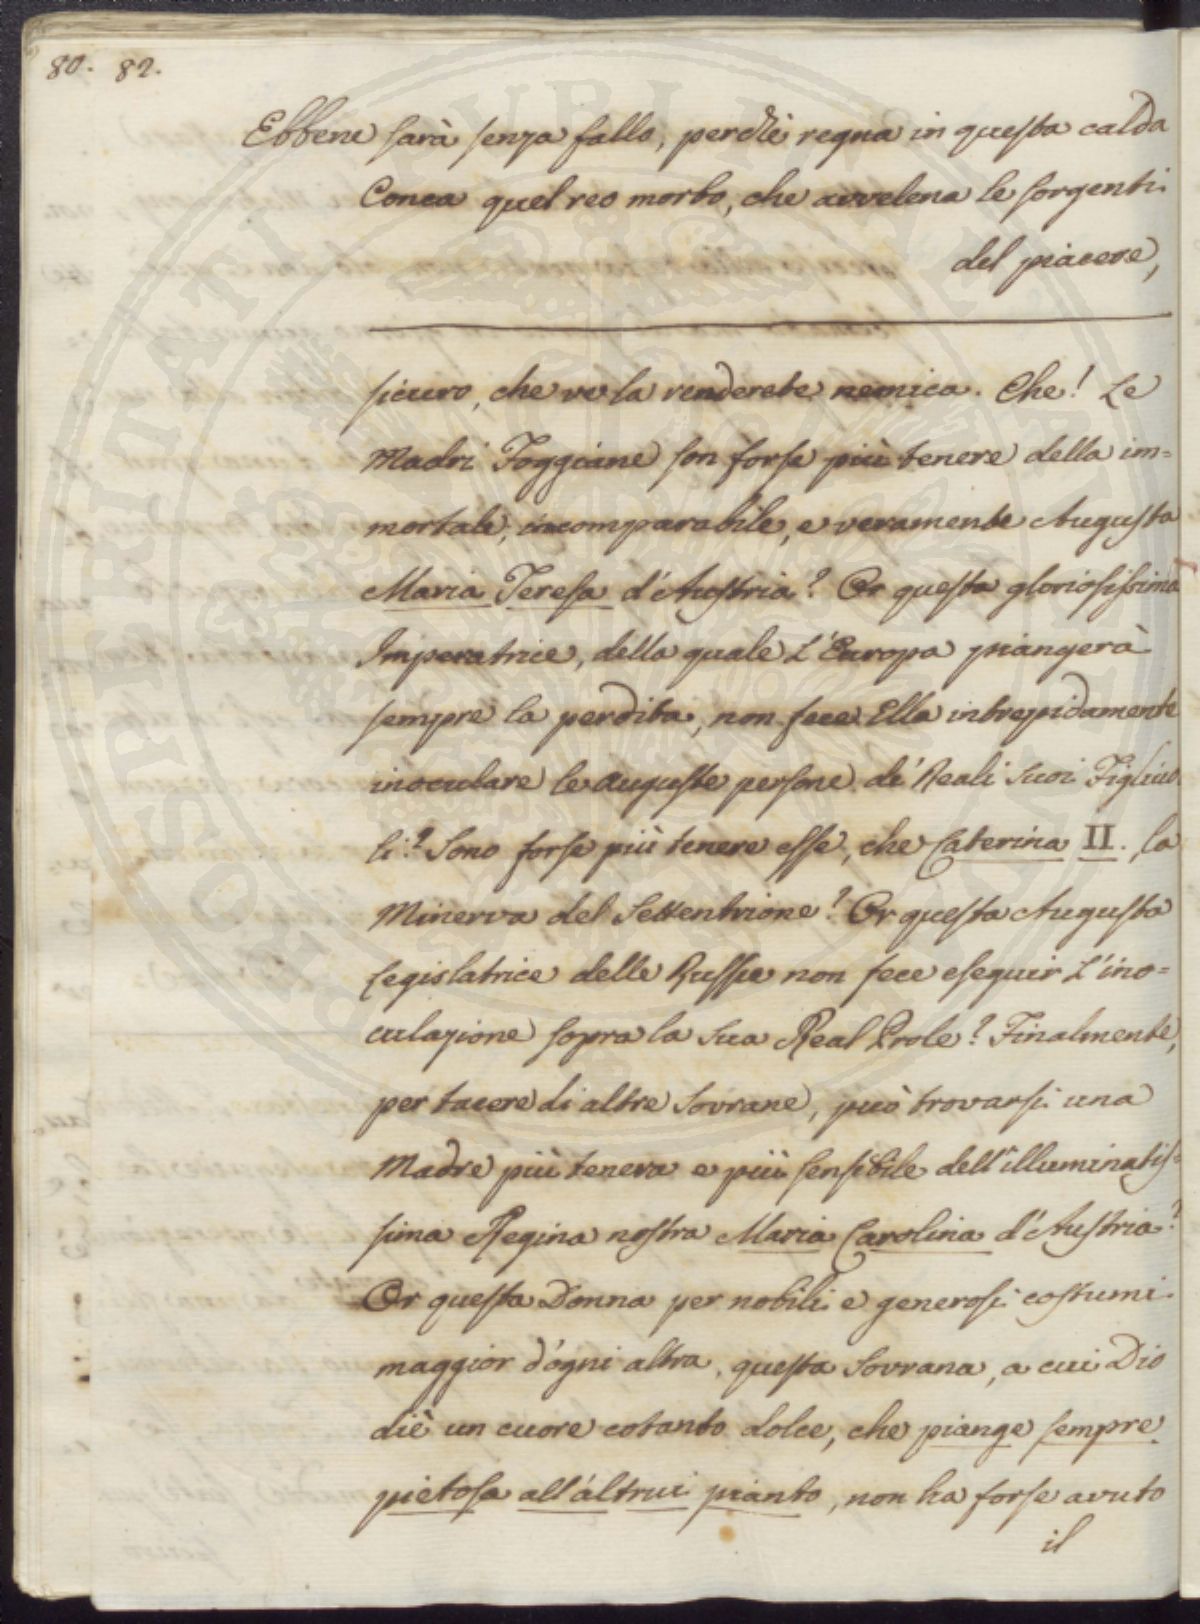 80. 82.
Ebbene sarà senza fallo, perchè regna in questa calda
Conca quel reo morbo, che avvelena le sorgenti
del piacere,
sicuro, che ve la renderete nemica. Che! Le
Madri Foggiane son forse più tenere della im=
mortale, incomparabile, e veramente Augusta
Maria Teresa d'Austria? Or questa gloriosissima
Imperatrice, della quale L'Europa piangerà
sempre la perdita, non fece Ella intrepidamente
inoculare le auguste persone de' Reali suoi Figliuo
li? Sono forse più tenere esse, che Caterina II., la
Minerva del Settentrione? Or questa Augusta
Legislatrice delle Russie non fece eseguir L'ino=
culazione sopra la sua Real Prole? Finalmente,
per tacere di altre Sovrane, può trovarsi una
Madre più tenera e più sensibile dell'illuminatis=
sima Regina nostra Maria Carolina d'Austria?
Or questa Donna per nobili e generosi costumi
maggior d'ogni altra, questa Sovrana, a cui Dio
diè un cuore cotanto dolce, che piange sempre
pietosa all'altrui pianto, non ha forse avuto
il
PROSPERITATI PUBLICAE